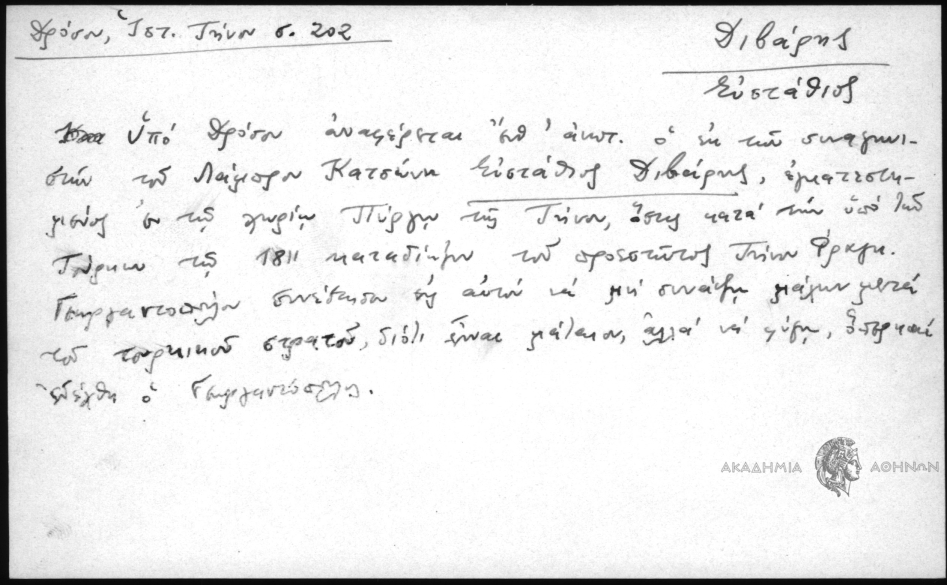 Δρόσου, Ἱστ. Τήνου σ. 202
Διβάρης
Εὐστάθιος
Ὑπό Δρόσου ἀναφέρεται ἔνθ' ἀνωτ. ὁ ἐκ τῶν συναγωνι-
στῶν τοῦ Λάμπρου Κατσώνη Εὐστάθιος Διβάρης, ἐγκατεστη-
μένος ἐν τῷ χωρίῳ Πύργῳ τῆς Τήνου, ὅστις κατά τήν ὑπό τῶν
Τούρκων τῷ 1811 καταδίωξιν τοῦ προεστῶτος Τήνου Φραγκ.
Γεωργαντοπούλου συνέστησεν εἰς αὐτόν νά μή συνάψῃ μάχην μετά
τοῦ τουρκικοῦ στρατοῦ, διότι εἶναι μάταιον, ἀλλά νά φύγῃ, ὅπερ καί
ἐδέχθη ὁ Γεωργαντόπουλος.
ΑΚΑΔΗΜΙΑ ΑΘΗΝΩΝ